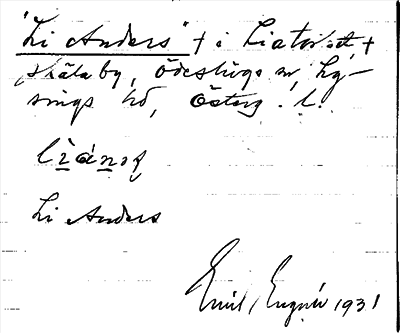 "Li Anders" + i Liatorpet, +
Skälaby, Ödeshögs sn, Ly-
sings hd, Österg. l.
Li Anders
Emil 1931